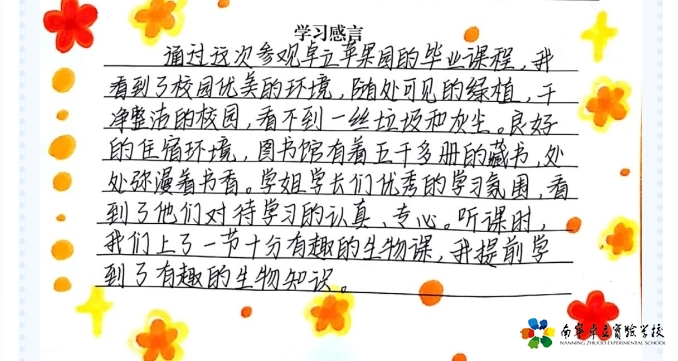 学习感言
通过这次参观卓立苹果园的毕业课程，我
看到了校园优美的环境，随处可见的绿植，干
净整洁的校园，看不到一丝垃圾和灰尘。良好
的住宿环境，图书馆有着五千多册的藏书，处
处弥漫着书香。学姐学长们优秀的学习氛围，看
到了他们对待学习的认真、专心。听课时，
我们上了一节十分有趣的生物课，我提前学
到了有趣的生物知识。
南宁卓立实验学校
NANNING ZHUOLI EXPERIMENTAL SCHOOL